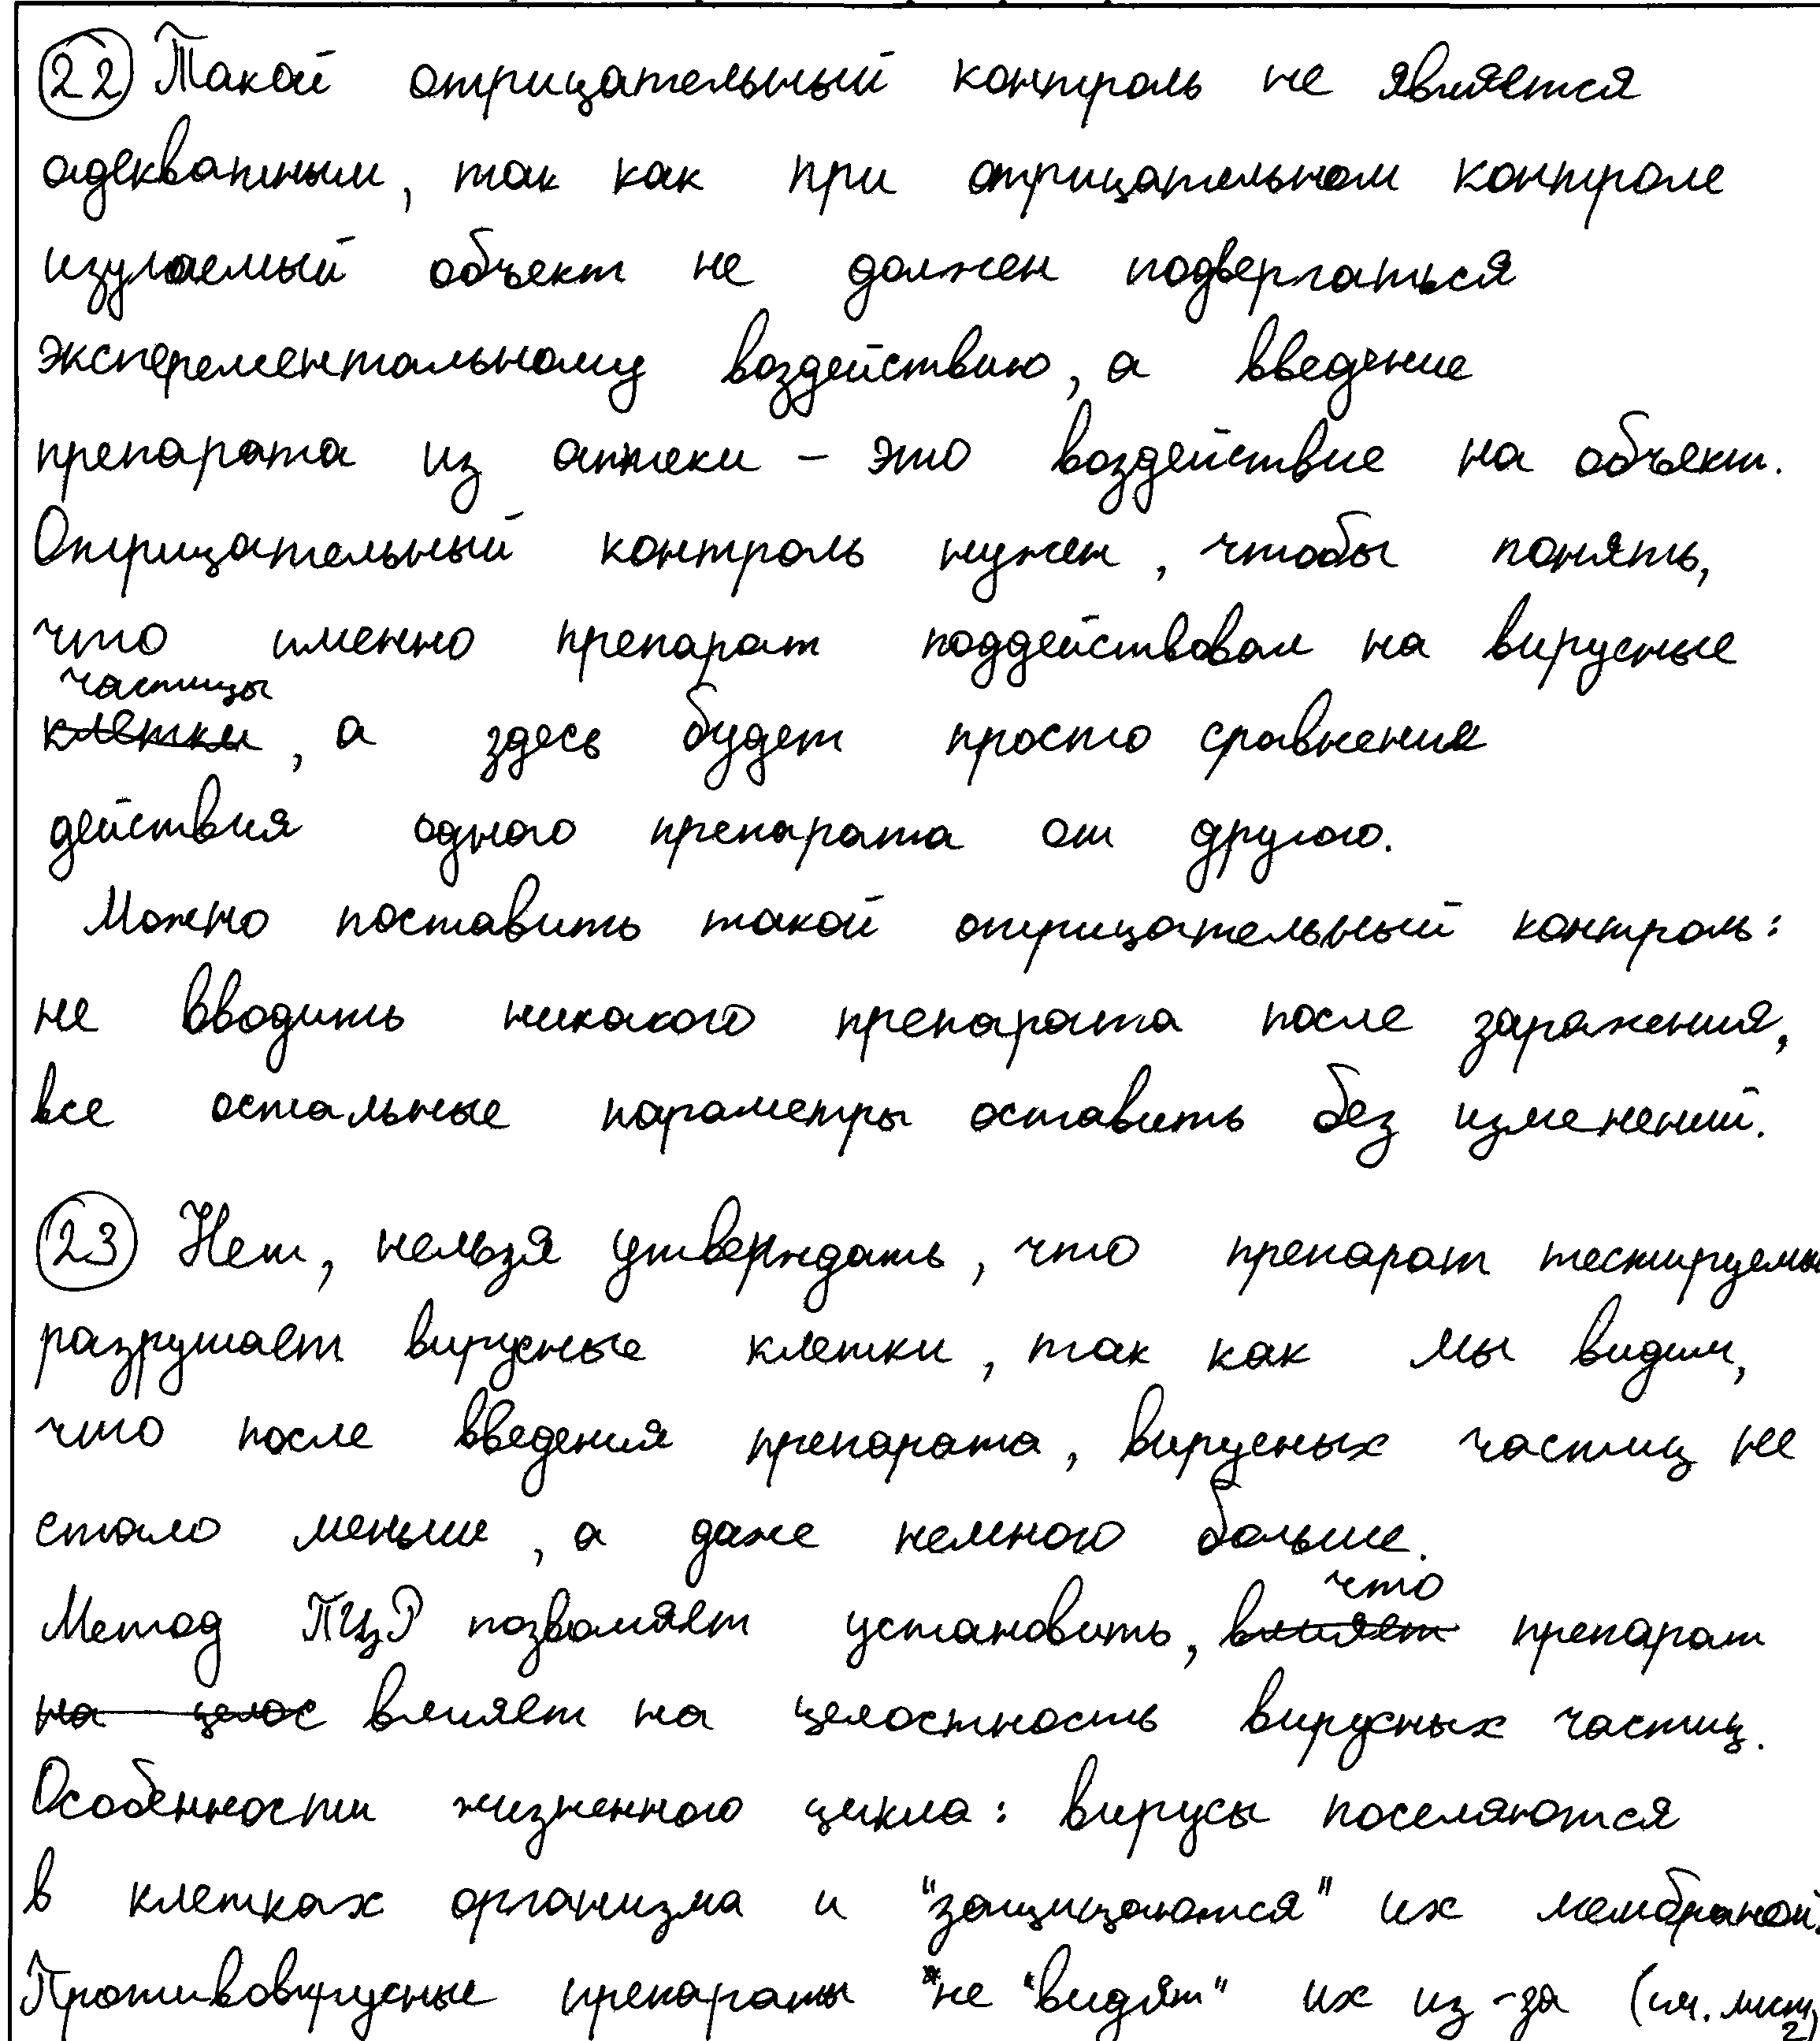 22 Такой отрицательный контроль не является
адекватным, так как при отрицательном контроле
изучаемый объект не должен подвергаться
эксперементальному воздействию, а введение
препарата из аптеки – это воздействие на объект.
Отрицательный контроль нужен, чтобы понять,
что именно препарат поддействовал на вирусные
частицы
клетки, а здесь будет просто сравнения
действия одного препарата от другого.
Можно поставить такой отрицательный контроль:
не вводить никакого препарата после заражения,
все остальные параметры оставить без изменений.
23 Нет, нельзя утверждать, что препарат тестируемы
разрушает вирусные клетки, так как мы видим,
что после введения препарата, вирусных частиц не
стало меньше, а даже немного больше.
что
Метод ПЦР позволяет установить, влияет препарат
на целос влияет на целостность вирусных частиц.
Особенности жизненного цикла: вирусы поселяются
в клетках организма и "защищаются" их мембраной.
Противовирусные препараты не "видят" их из-за (см. лист 2)